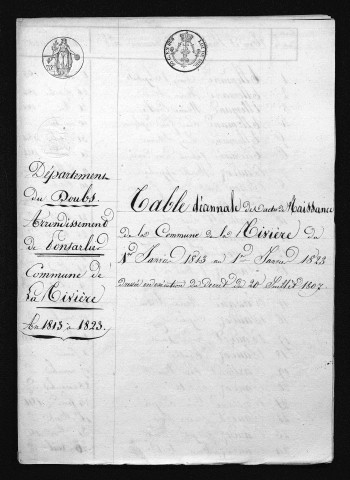 Département
du Doubs.
Arrondissement
de Pontarlier
Commune de
La Rivière
An 1813 à 1823.
Table décennale des actes de Naissance
de la Commune de la Rivière du
1er Janvier 1813 au 1er Janvier 1823
Dressée en exécution du Décret du 20 Juillet 1807